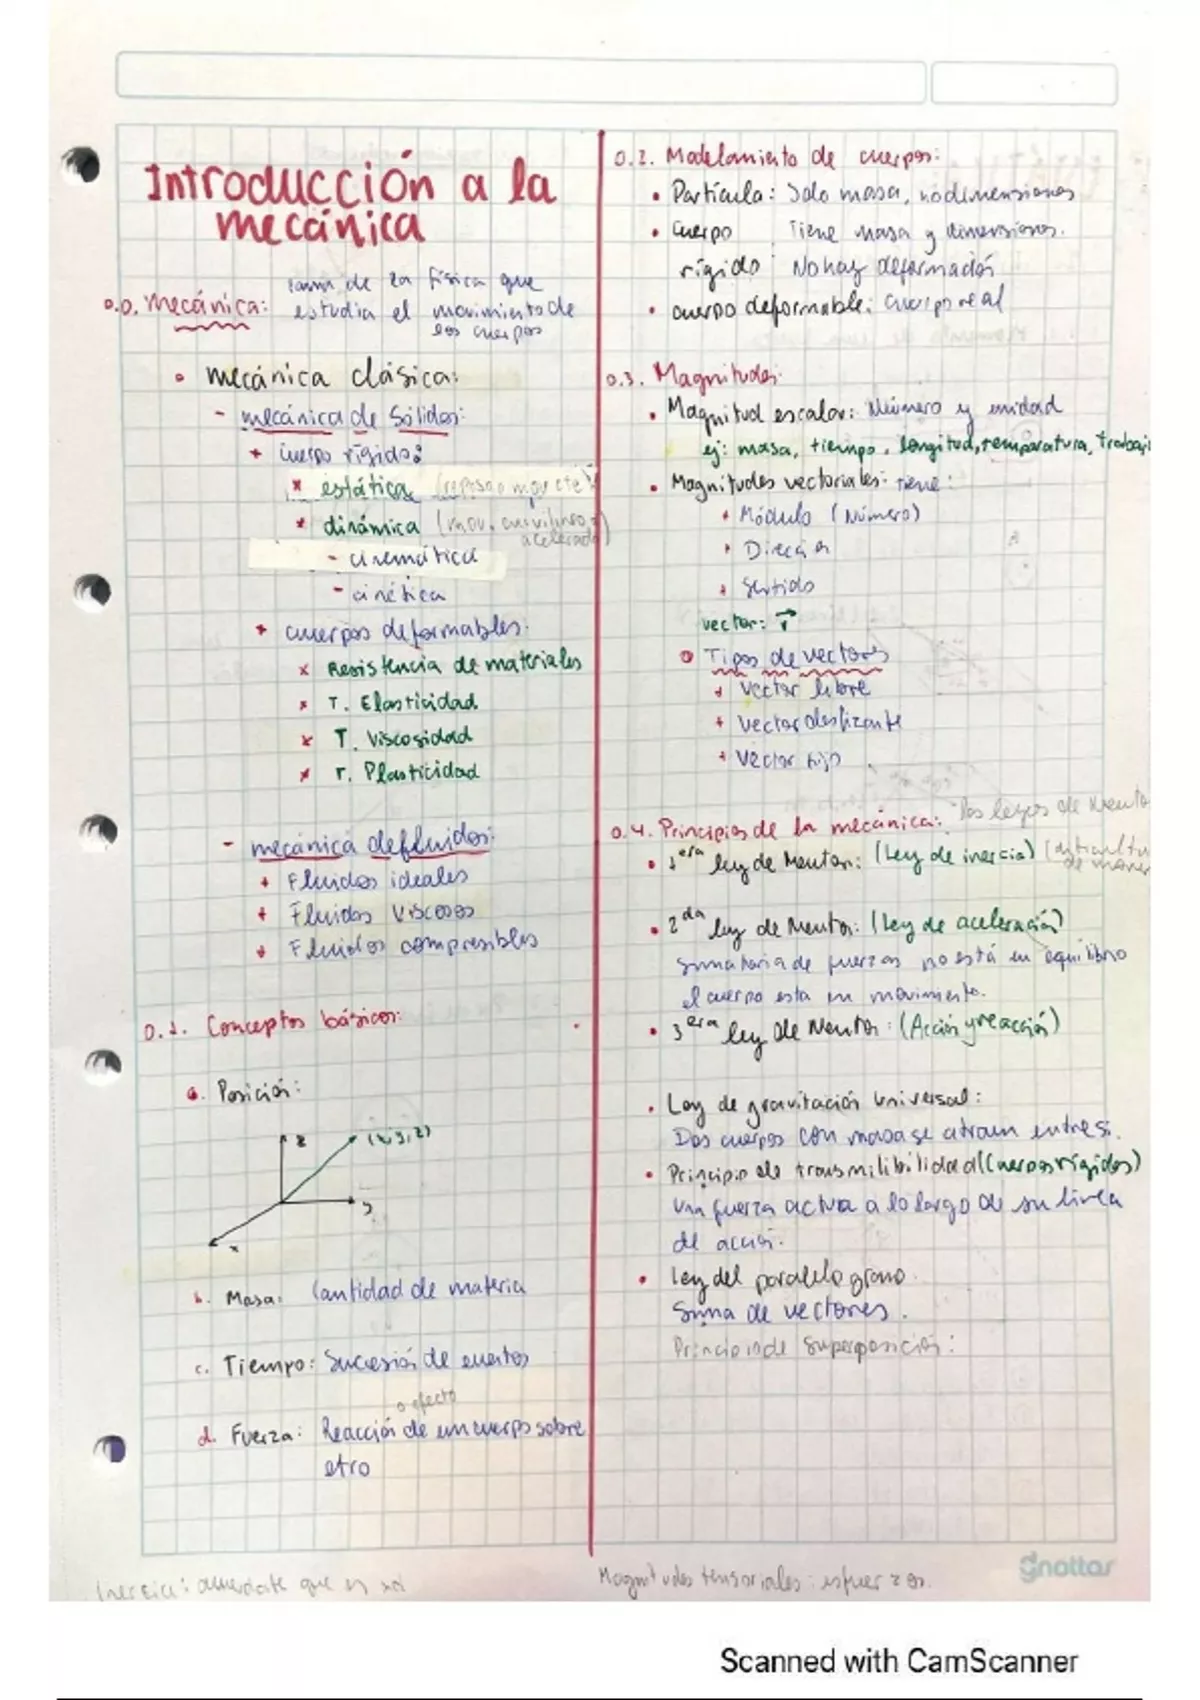 Introducción a la
mecánica
0.0. Mecánica: rama de la física que
estudia el movimiento de
los cuerpos
• mecánica clásica:
- mecánica de sólidos:
+ cuerpo rígido:
x estática (reposo o mov cte)
* dinámica (mov. curvilíneo o
acelerado)
- cinemática
- cinética
+ cuerpos deformables:
x Resistencia de materiales
x T. Elasticidad
x T. Viscosidad
x T. Plasticidad
- mecánica de fluidos:
+ Fluidos ideales
+ Fluidos viscosos
+ Fluidos compresibles
0.1. Conceptos básicos:
a. Posición:
z
(x,y,z)
y
x
b. Masa: Cantidad de materia
c. Tiempo: Sucesión de eventos
o efecto
d. Fuerza: Reacción de un cuerpo sobre
otro
Inercia: acuerdate que es
0.2. Modelamiento de cuerpos:
• Partícula: Solo masa, no dimensiones
• Cuerpo Tiene masa y dimensiones.
rígido: No hay deformación
• cuerpo deformable: cuerpo real
0.3. Magnitudes:
• Magnitud escalar: Número y unidad
ej: masa, tiempo, longitud, temperatura, trabaj
• Magnitudes vectoriales: tiene:
+ Módulo (Número)
+ Dirección
+ Sentido
vector: r⃗
• Tipos de vectores
+ Vector libre
+ vector deslizante
+ Vector fijo
0.4. Principios de la mecánica: las leyes de Newto
• 1era ley de Newton: (Ley de inercia) (dificultad
de mover
• 2da ley de Newton: (Ley de aceleración)
sumatoria de fuerzas no está en equilibrio
el cuerpo esta en movimiento.
• 3era ley de Newton: (Acción y reacción)
• Ley de gravitación universal:
Dos cuerpos con masa se atraen entre si.
• Principio de transmilibilidad (Cuerpos rígidos)
Una fuerza actua a lo largo de su línea
de acción.
• Ley del paralelogramo.
Suma de vectores.
Principio de superposición:
Magnitudes tensoriales: esfuerzos.
gnottas
Scanned with CamScanner